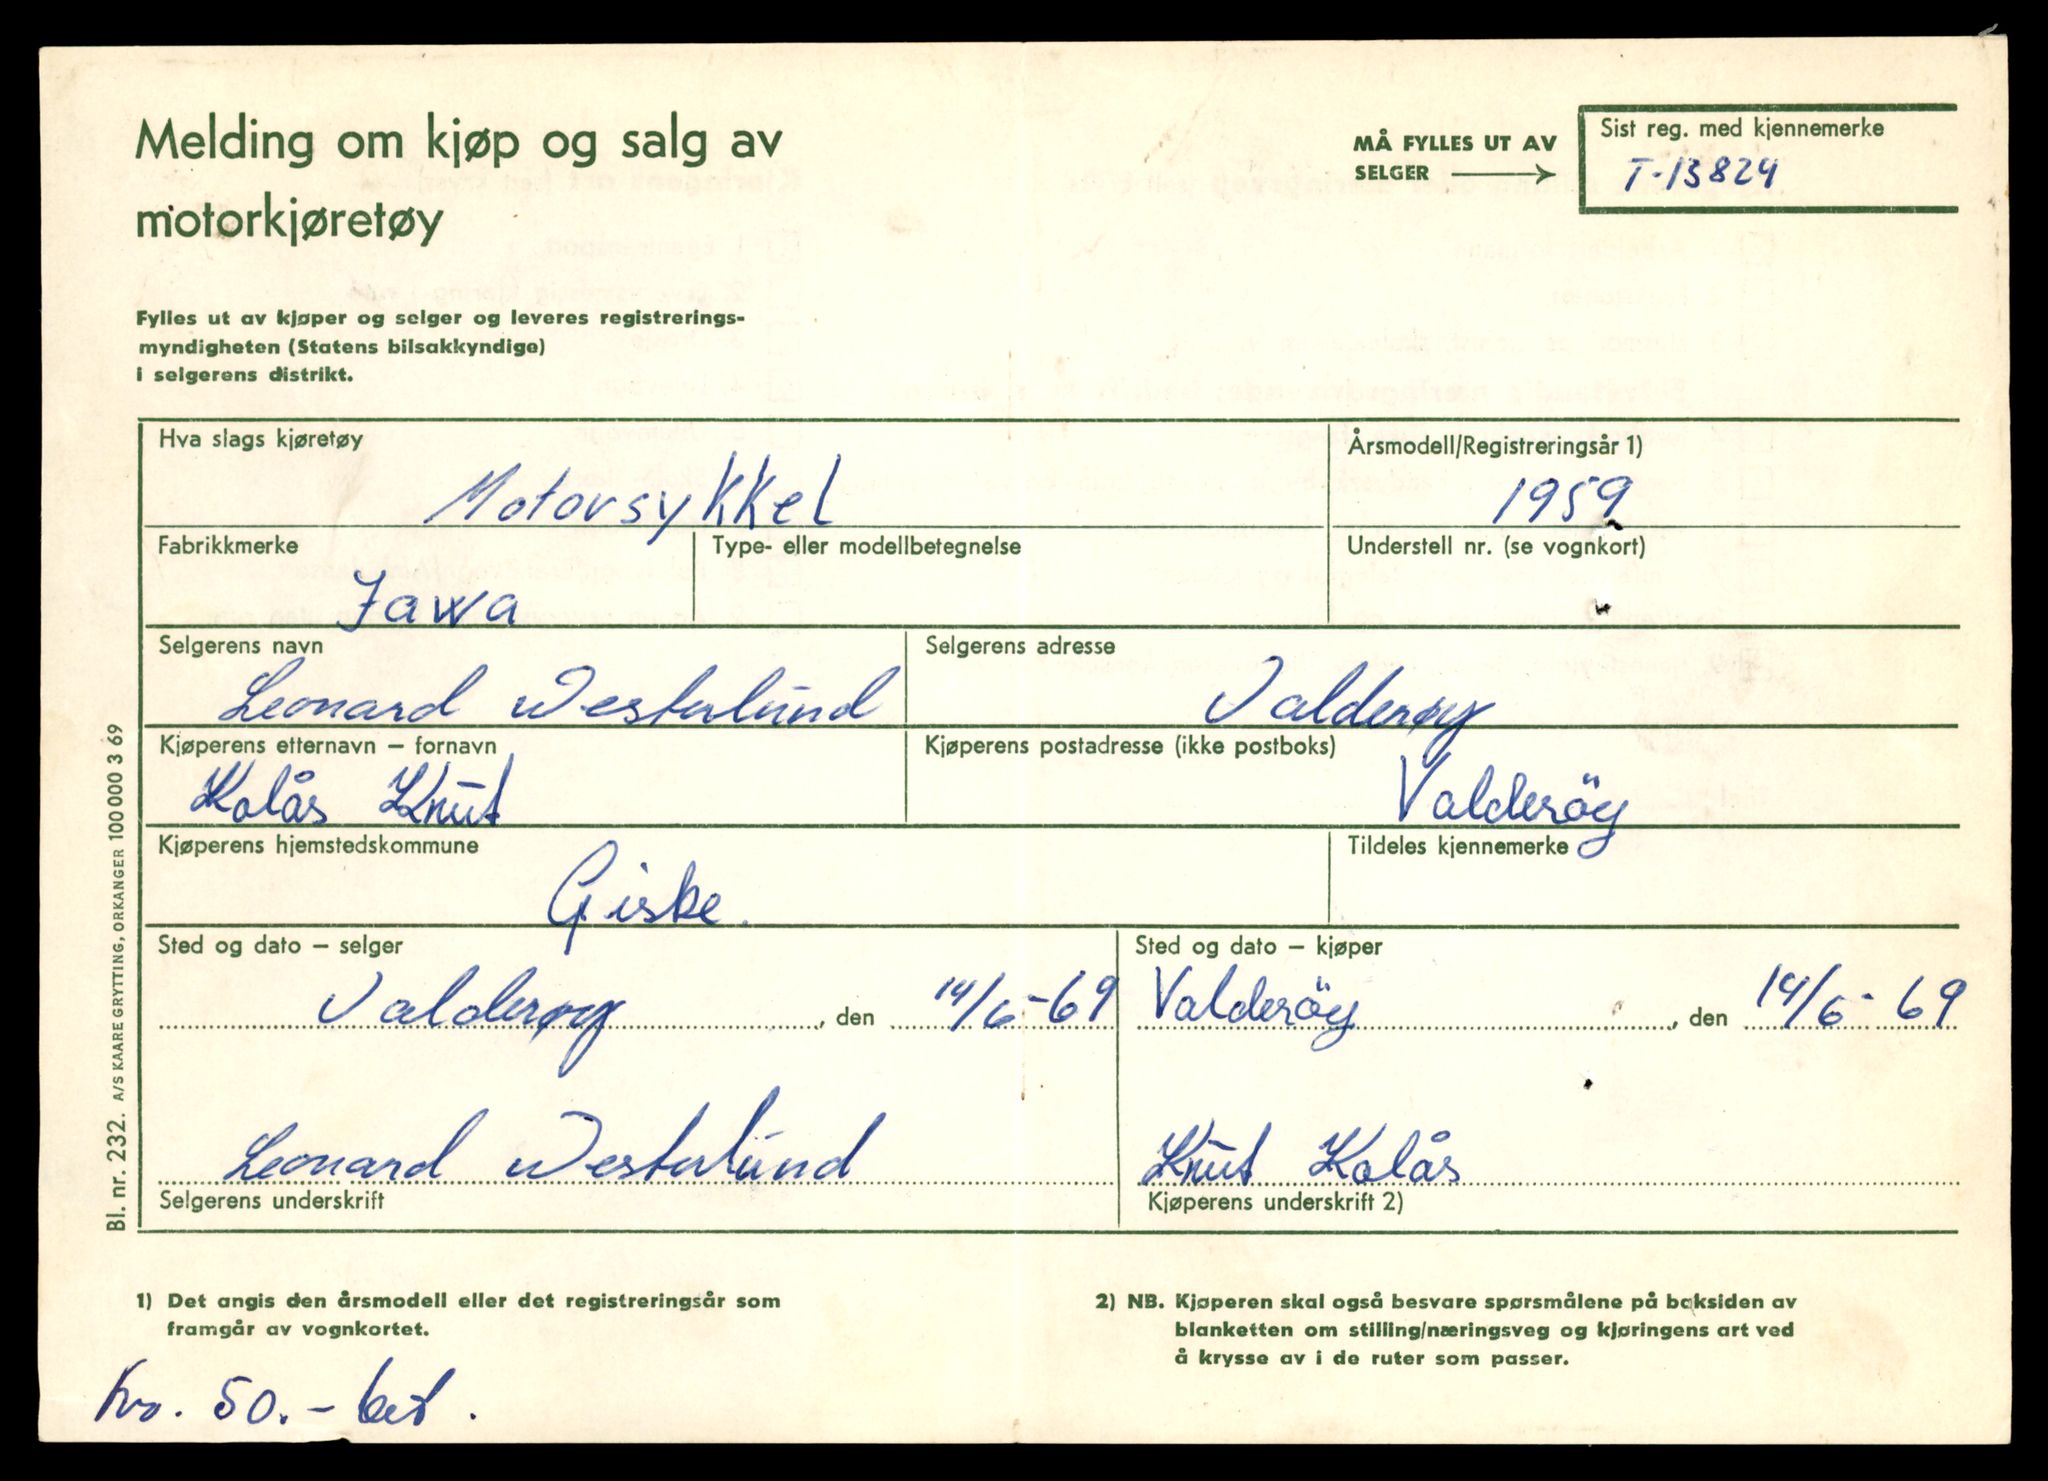 Melding om kjøp og salg av
motorkjøretøy
MÅ FYLLES UT AV
SELGER
Sist reg. med kjennemerke
T-13824
Fylles ut av kjøper og selger og leveres registrerings-
myndigheten (Statens bilsakkyndige)
i selgerens distrikt.
Hva slags kjøretøy
Motorsykkel
Årsmodell/Registreringsår 1)
1959
Fabrikkmerke
Jawa
Type- eller modellbetegnelse
Understell nr. (se vognkort)
Selgerens navn
Leonard Westerlund
Selgerens adresse
Valderøy
Kjøperens etternavn – fornavn
Kolås Knut
Kjøperens postadresse (ikke postboks)
Valderöy
Kjøperens hjemstedskommune
Giske.
Tildeles kjennemerke
Sted og dato – selger
Valderøy, den 14/6-69
Sted og dato – kjøper
Valderöy, den 14/6-69
Leonard Westerlund
Selgerens underskrift
Knut Kolås
Kjøperens underskrift 2)
Bl. nr. 232. A/S KAARE GRYTTING, ORKANGER 100 000 3 69
1) Det angis den årsmodell eller det registreringsår som
framgår av vognkortet.
2) NB. Kjøperen skal også besvare spørsmålene på baksiden av
blanketten om stilling/næringsveg og kjøringens art ved
å krysse av i de ruter som passer.
kr. 50.- bet.